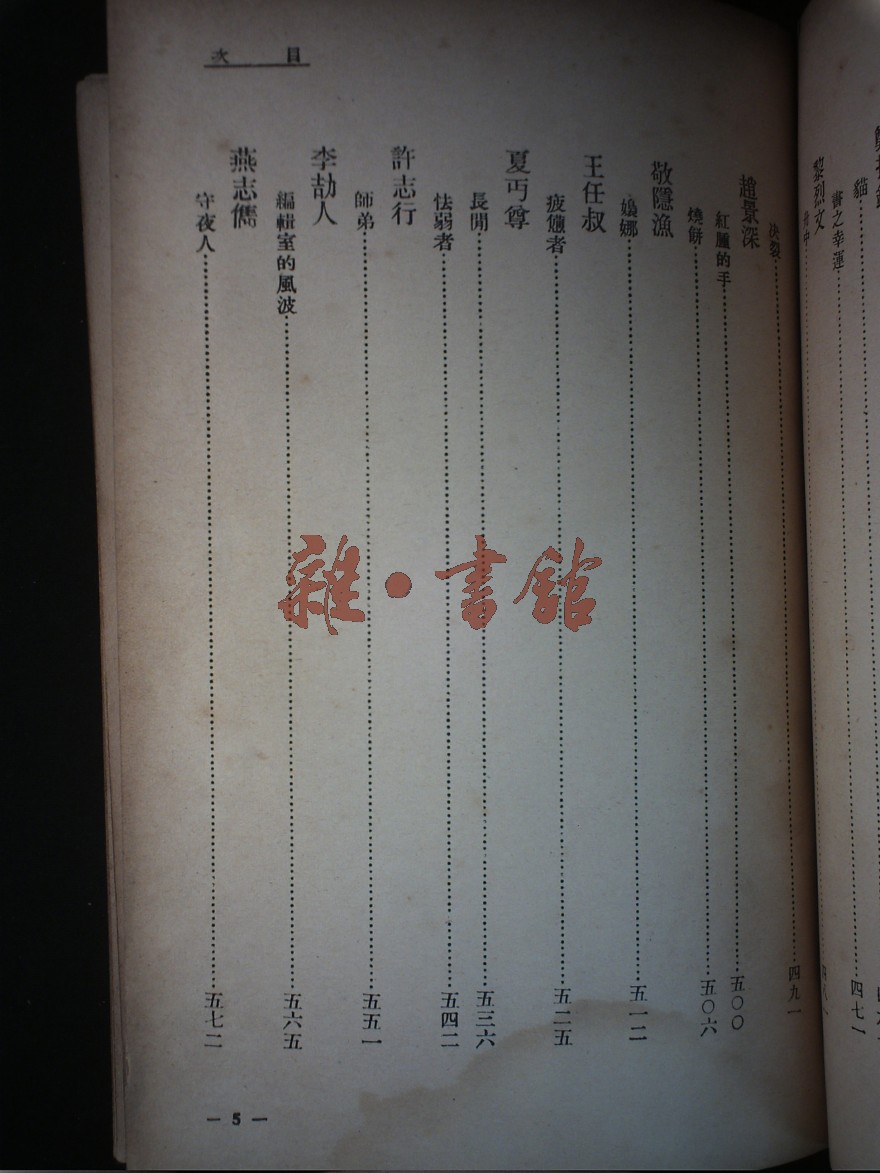 貓……四七一
書之幸運
黎烈文
舟中
決裂……四九一
趙景深
紅腫的手……五〇〇
燒餅……五〇六
敬隱漁
嬝娜……五一二
王任叔
疲憊者……五二五
夏丏尊
長閒……五三六
怯弱者……五四二
許志行
師弟……五五一
李劼人
編輯室的風波……五六五
燕志儁
守夜人……五七二
目次
— 5 —
雜·書館